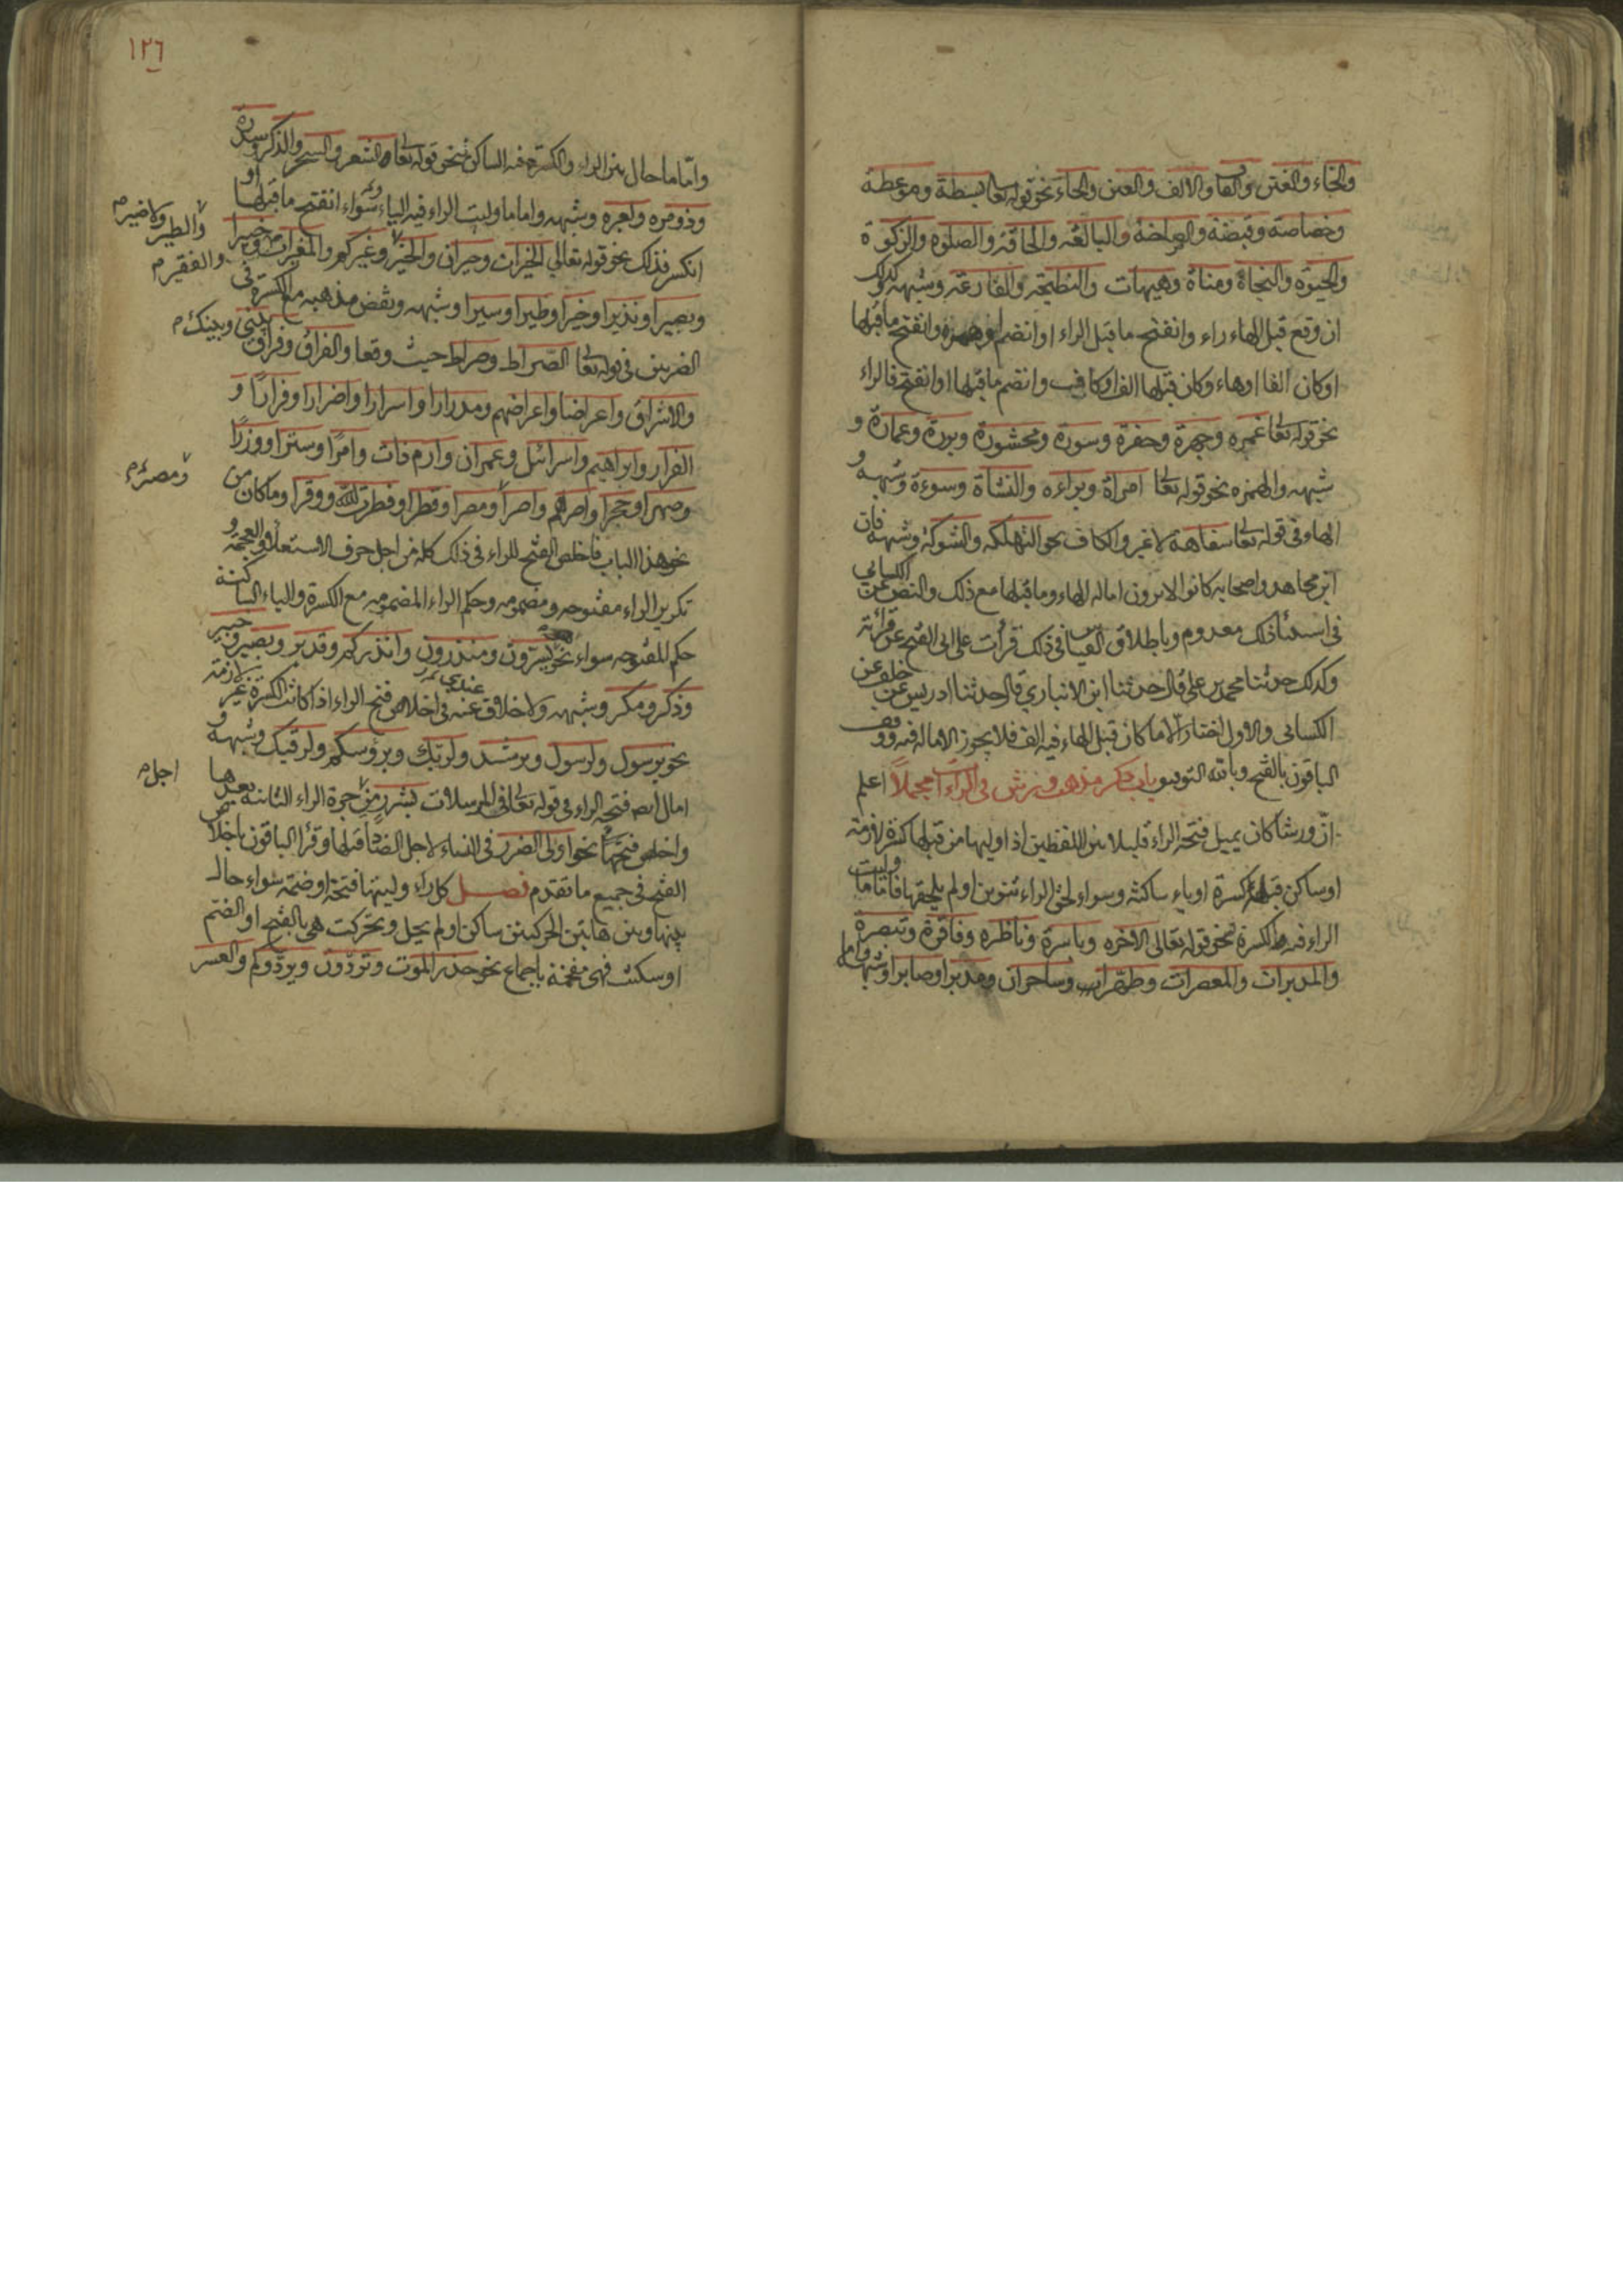 والخاء والغين والقاف والالف والعين والحاء نحو قوله تعالى بسطة وموعظة
وخصاصة وقبضة والعياضة والبالغه والحاقة والصلوة والزكوة
والحيوة والنجاة ومناة وهيهات والنطيحة والقارعة وشبهه كذلك
ان وقع قبل الهاء راء وانفتح ما قبل الراء او انضم او همزه وانفتح ما قبلها
او كان الفا او هاء وكان قبلها الف او كاف وانضم ما قبلها او انفتح فالراء
نحو قوله تعالى غمره وجهرة وحفرة وسورة ومحشورة وبررة وعمارة و
شبهه والهمزه نحو قوله تعالى امراة وبراءه والنشاة وسوءة وشبهه و
الهاء في قوله تعالى سفاهة لا غير والكاف نحو التهلكه والشوكة وشبهه فان
ابن مجاهد واصحابه كانوا لا يرون امالة الهاء وما قبلها مع ذلك والنص عن الكسائي
في استثنا ذلك معدوم وباطلاق القياس في ذلك قرات على ابي الفتح عن قراءته
وكذلك حدثنا محمد بن علي قال حدثنا ابن الانباري قال حدثنا ادريس عن خلف عن
الكسائي والاول اختار الا ما كان قبل الهاء فيه الف فلا يجوز الامالة فيه ووقف
الباقون بالفتح وبالله التوفيق باب ذكر مذهب ورش في الراات مجملاً اعلم
انّ ورشا كان يميل فتحة الراء قليلا بين اللفظين اذا وليها من قبلها كسرة لازمة
او ساكن قبله كسرة او ياء ساكنة وسواء لحق الراء تنوين او لم يلحقها فاما ما وليت
الراء فيه الكسرة نحو قوله تعالى الاخره وباسرة وناظره وفاقرة وتبصرة
والمدبرات والمعصرات وطهرا وساحران ومدبرا وصابرا وشبهه واما
١٢٦
وامّا ما حال بين الراء والكسرة فيه الساكن فنحو قوله تعالى الشعر والسحر والذكر وسدرة
وذو مره ولعبره وشبهه واما ما وليت الراء فيه الياء وسواء انفتح ما قبلها او
انكسر فذلك نحو قوله تعالى الخيرات وحيران والخير وغيركم والمغيرات وخبيرا
والطير ولا ضير م
والفقير م
وبصيرا ونذيرا وخيرا وطيرا وسيرا وشبهه ونقض مذهبه مع الكسرة في
الضربين في قوله تعالى الصراط وصراط حيث وقعا والفراق وفراق بيني وبينك م
والاشراق واعراضا واعراضهم ومدرارا واسرارا واضرارا وفرارًا و
الفرار وابراهيم واسرائل وعمران وارم ذات وامرًا وسترا ووزرًا
وصهرا وحجرا واصرهم واصراً ومصرا وقطرا وفطرت الله ووقرا وما كان من
ومصر م
نحو هذا الباب فاخلص الفتح للراء في ذلك كله من اجل حرف الاستعلاء والعجمة و
تكرير الراء مفتوحه ومضمومه وحكم الراء المضمومه مع الكسرة والياء الساكنة
حكم المفتوحه سواء نحو يسرون ومنذرون وانذركم وقدير وبصير وخبير
وذكر ومكر وشبهه ولا خلاف عنه في اخلاص فتح الراء اذا كانت الكسرة غير لازمة
نحو برسول ولرسول وبرشد ولربك وبرؤسكم ولرقيك وشبهه و
امال ايضا فتحة الراء في قوله تعالى في المرسلات بشرر من جرة الراء الثانية بعدها
اجل م
واخلص فتحها نحو اولى الضرر في النساء لاجل الضاد قبلها وقرأ الباقون باخلاص
الفتح في جميع ما تقدم فصل كل راء وليتها فتحة او ضمة سواء حال
بينها وبين هاتين الحركتين ساكن او لم يحل وتحركت هي بالفتح او الضم
او سكنت فهي مفخمة باجماع نحو حذر الموت وتردون ويردوكم والعسر